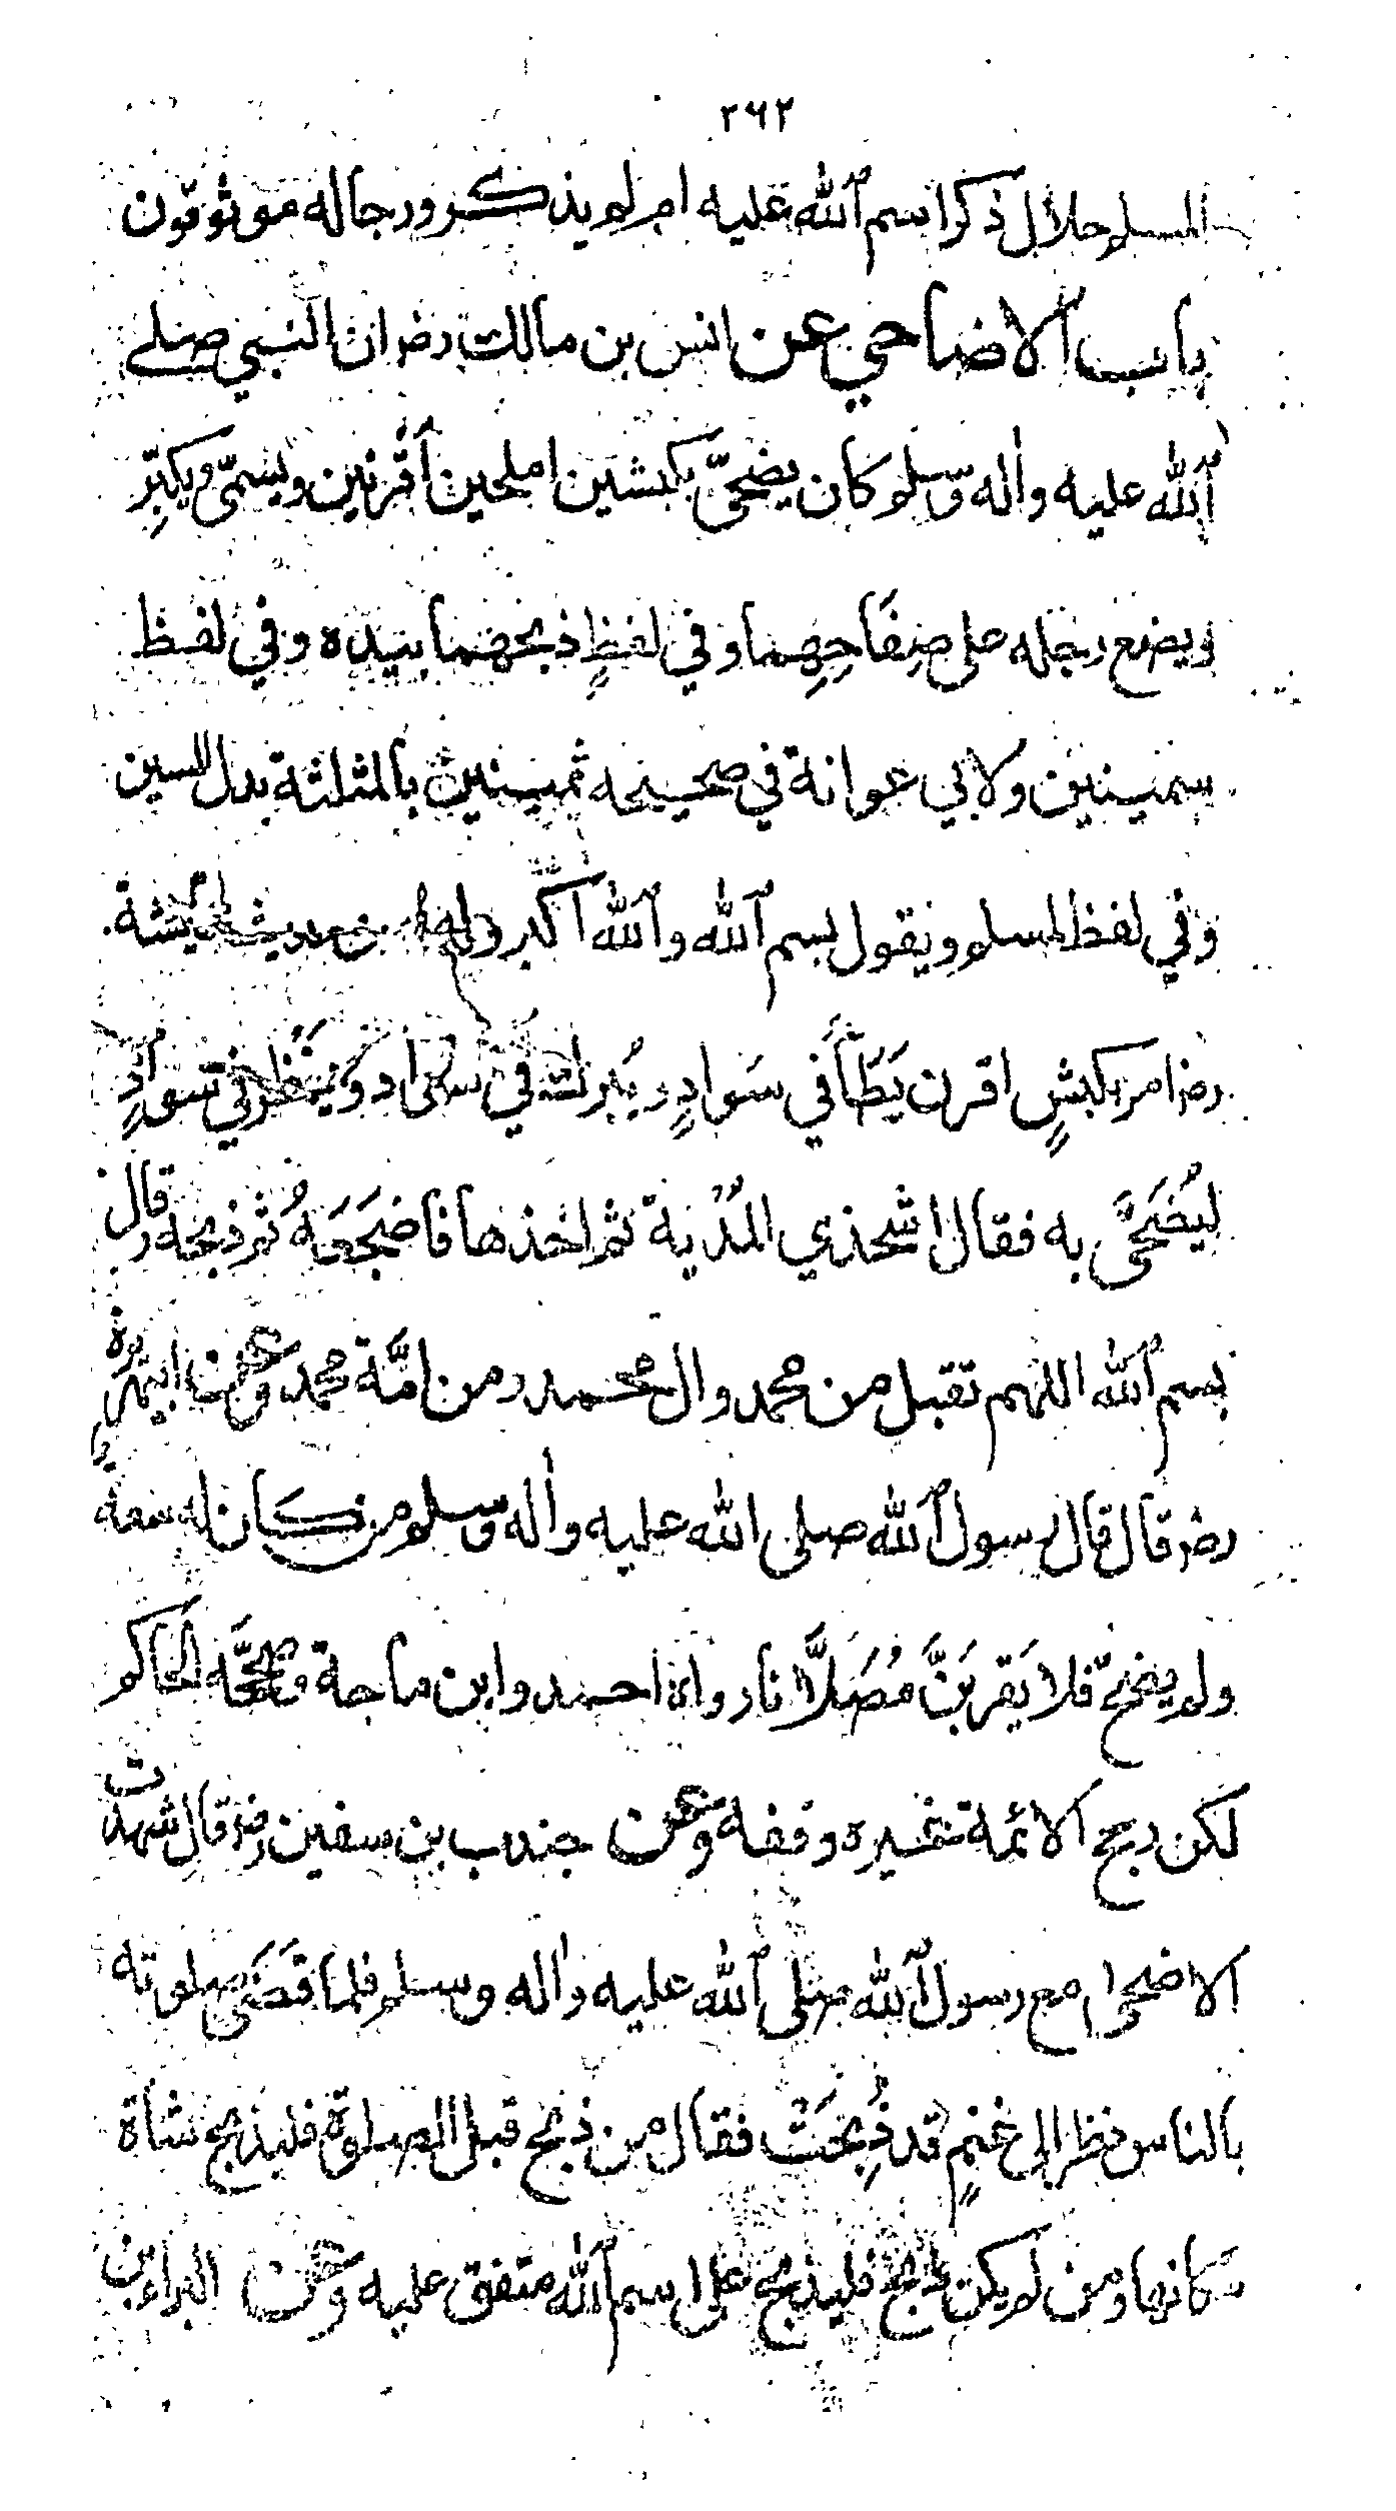 ٢٦٢
المسلم حلال ذكر اسم الله عليه ام لم يذكر ورجاله موثوقون
باب الاضاحي عن انس بن مالك رضه ان النبي صلے
الله عليه واٰله وسلم كان يضحّى بكبشين املحين أقرنين ويسمّى ويكبّر
ويضع رجله على صِفَاحِهِما وفي لفظٍ ذبحهما بيده وفي لفظ
سمينين ولابي عوانة في صحيحه ثمينين بالمثلثة بدل السين
وفي لفظ لمسلم ويقول بسم الله والله اكبر وله من حديث عايشة
رضه امر بكبشٍ اقرن يَطَأُ في سَوادٍ ويَبرك في سواد وينظر في سوادٍ
ليُضَحّى به فقال اشحذي المُدْية ثم اخذها فاضجَعَهُ ثم ذبحه وقال
بسم الله اللهم تقبل من محمد وال محمد ومن امّة محمد وعن ابيهريرة
رضه قال قال رسول الله صلى الله عليه واٰله وسلم من كان له سعة
ولم يضحّ فلا يَقربَنَّ مُصَلَّانا رواه احمد وابن ماجة وصحّحه الحاكم
لكن رجح الائمة غيره وقفه وعن جندب بن سفين رضه قال شهدت
الاضحى مع رسول الله صلى الله عليه واٰله وسلم فلما قَضَى صلوته
بالناس نظر الى غنمٍ قد ذُبِحَتْ فقال من ذبح قبل الصلوة فليذبح شاة
مكانها ومن لم يكن ذبح فليذبح على اسم الله متفق عليه وعن البراء بن